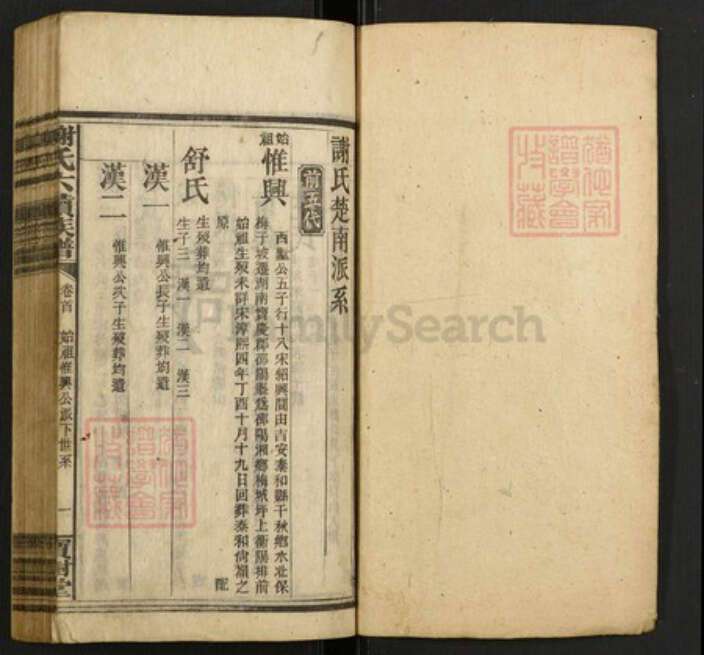 謝氏楚南派系
前五代
始祖 惟興
西墅公五子行十八宋紹興間由吉安泰和縣千秋鄉水北保
梅子坡遷湖南寶慶郡邵陽縣為邵陽湘鄉梅城坪上衝陽排前
始祖生歿未詳宋淳熙四年丁酉十月十九日回葬泰和尙嶺之
原 配
舒氏
生歿葬均遺
生子三 漢一 漢二 漢三
漢一
惟興公長子生歿葬均遺
漢二
惟興公次子生歿葬均遺
謝氏六 族譜 卷首 始祖惟興公派下世系 一 寶樹堂
FamilySearch